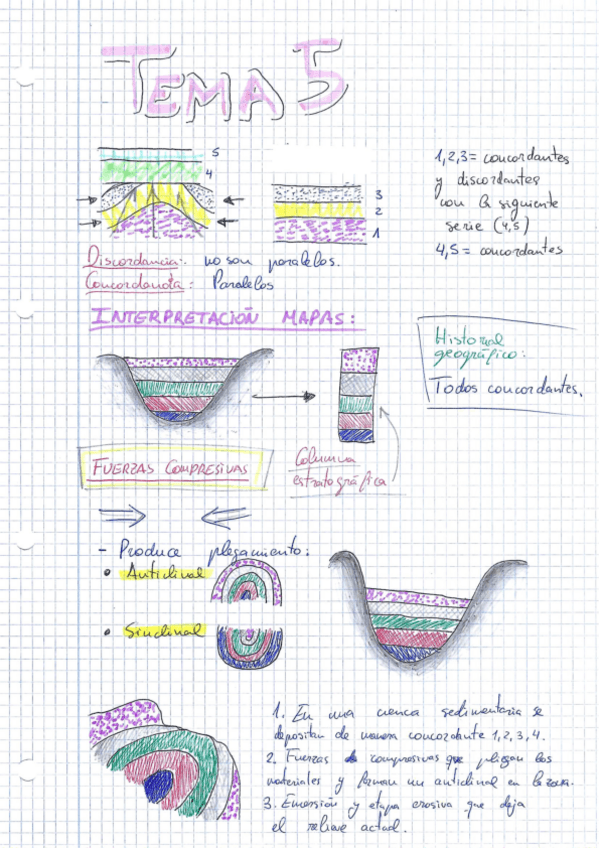 TEMA 5
5
4
3
2
1
1,2,3 = concordantes
y discordantes
con la siguiente
serie (4,5)
4,5 = concordantes
Discordancia: no son paralelos.
Concordancia: Paralelos
INTERPRETACIÓN MAPAS:
Historial
geográfico:
Todos concordantes.
FUERZAS COMPRESIVAS
Columna
estratográfica
- Produce plegamiento:
• Anticlinal
• Sinclinal
1. En una cuenca sedimentaria se
depositan de manera concordante 1, 2, 3, 4.
2. Fuerzas compresivas que pliegan los
materiales y forman un anticlinal en la zona.
3. Emersión y etapa erosiva que deja
el relieve actual.